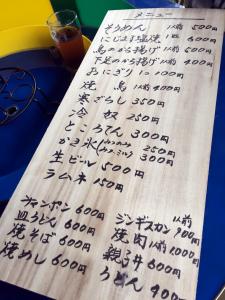 メニュー
そうめん 1人前 500円
にじます塩焼 1匹 600円
鳥のから揚げ 1人前 500円
下足のから揚げ 1人前 400円
おにぎり 1コ 100円
焼鳥 1本 400円
寒ざらし 350円
冷奴 250円
ところてん 300円
かき氷 250円
300円
生ビール 500円
ラムネ 150円
チャンポン 600円
皿うどん 600円
焼そば 600円
焼めし 600円
ジンギスカン 1人前 900円
焼肉 1人前 1,000円
親子丼 600円
うどん 400円